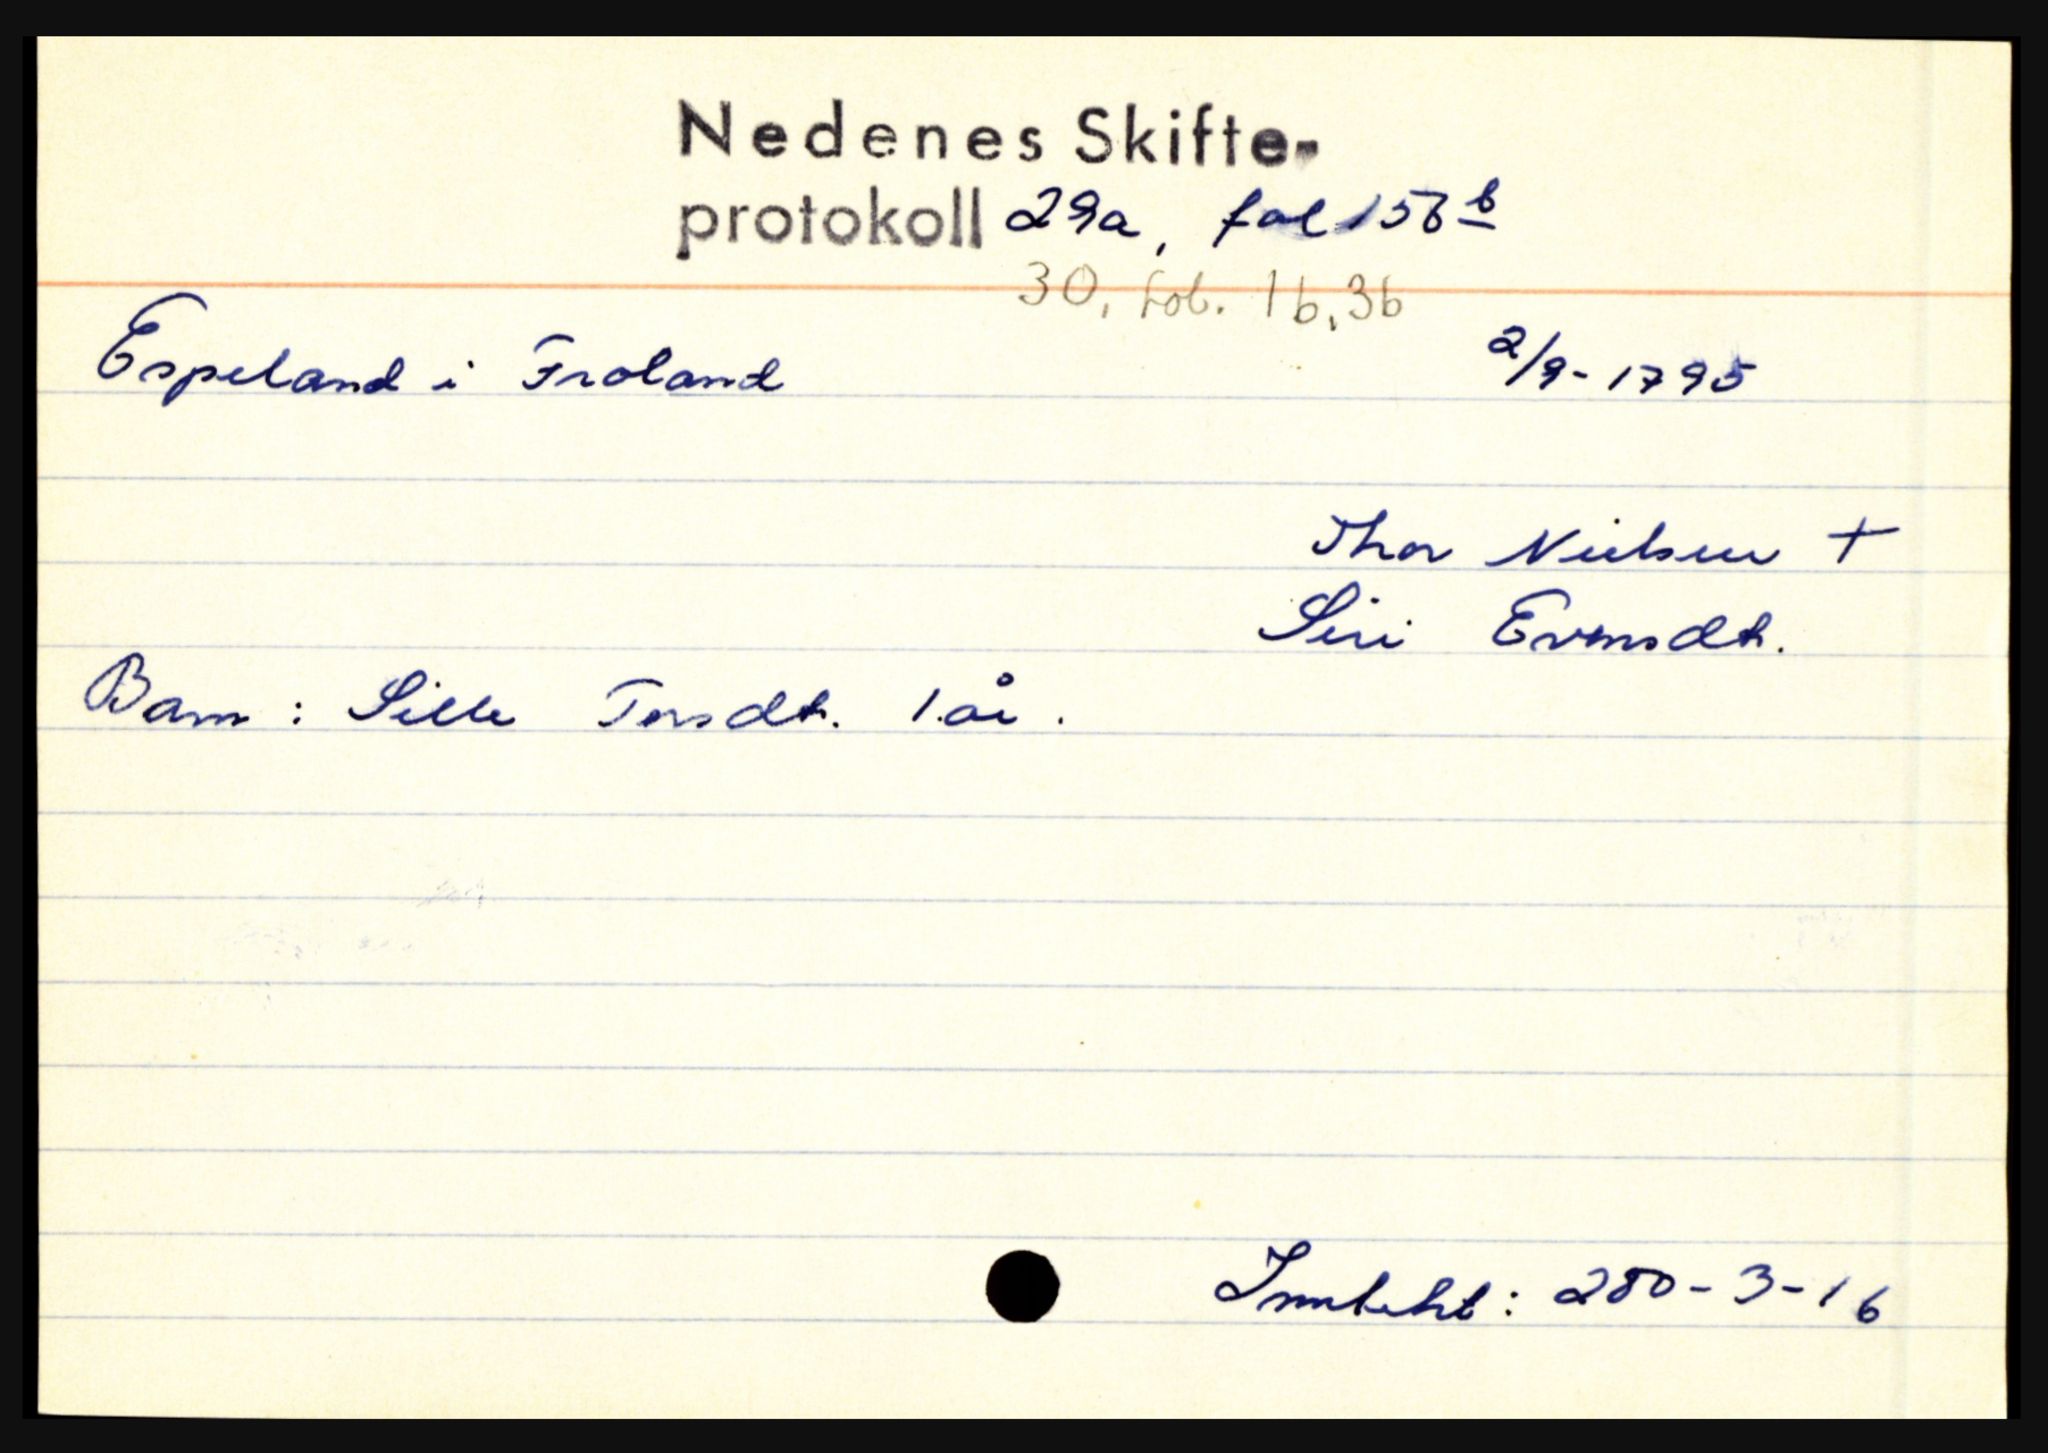 Nedenes Skifte-
protokoll 29a, fol 156 b
30, fol. 1b, 3b
Espeland i Froland 2/9-1795
Thor Nielsen +
Siri Evensdt.
Barn: Sille Torsdt. 1. år.
Inntekt: 280-3-16